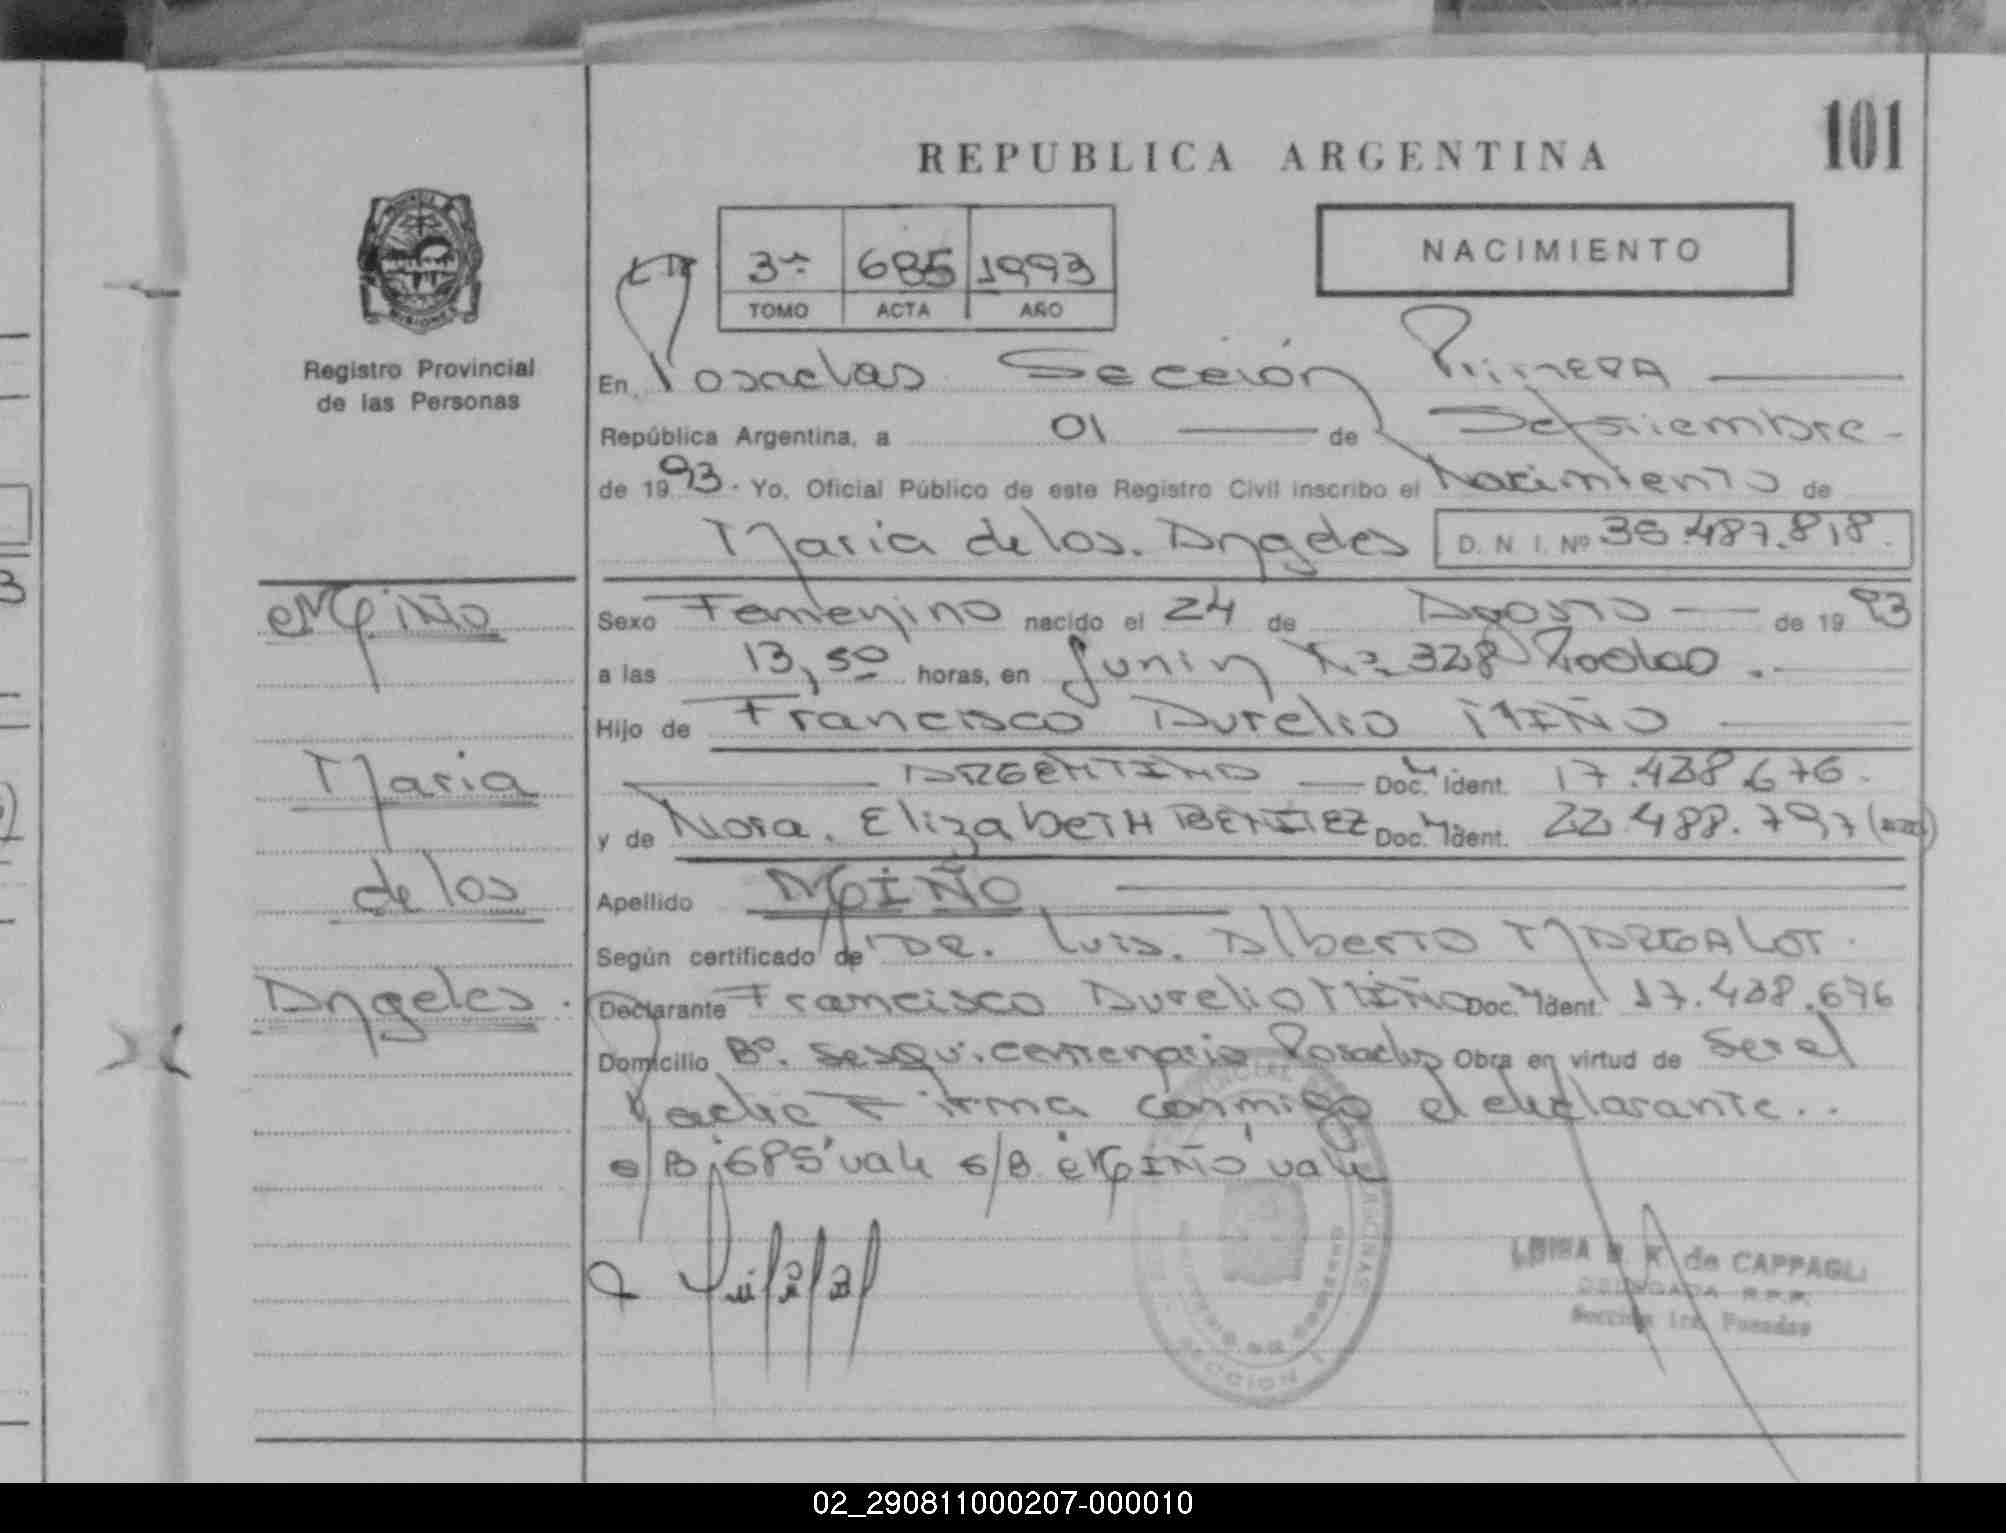 101
REPUBLICA ARGENTINA
NACIMIENTO
3º 685 1993
TOMO ACTA AÑO
MISIONES
Registro Provincial
de las Personas
En Posadas Sección Primera
República Argentina, a 01 de Setiembre
de 1993. Yo, Oficial Público de este Registro Civil inscribo el Nacimiento de
Maria de los Angeles D. N. I. Nº 38.487.818.
MIÑO
Maria
de los
Angeles.
Sexo Femenino nacido el 24 de Agosto de 1993
a las 13,50 horas, en Junin Nº 328 Posadas.
Hijo de Francisco Aurelio MIÑO
ARGENTINO Doc. Ident. 17.438.676.
y de Nora Elizabeth BENITEZ Doc. Ident. 22.488.797
Apellido MIÑO
Según certificado de DR. Luis Alberto MARGALOT.
Declarante Francisco Aurelio MIÑO Doc. Ident. 17.438.676
Domicilio Bº. Sesquicentenario Posadas Obra en virtud de Ser el
Padre Firma conmigo el declarante..
s/B "685" vale s/B. "MIÑO" vale
de CAPPAGLI
DELEGADA R.P.P.
Sección 1ra. Posadas
SECCION 1
02_290811000207-000010